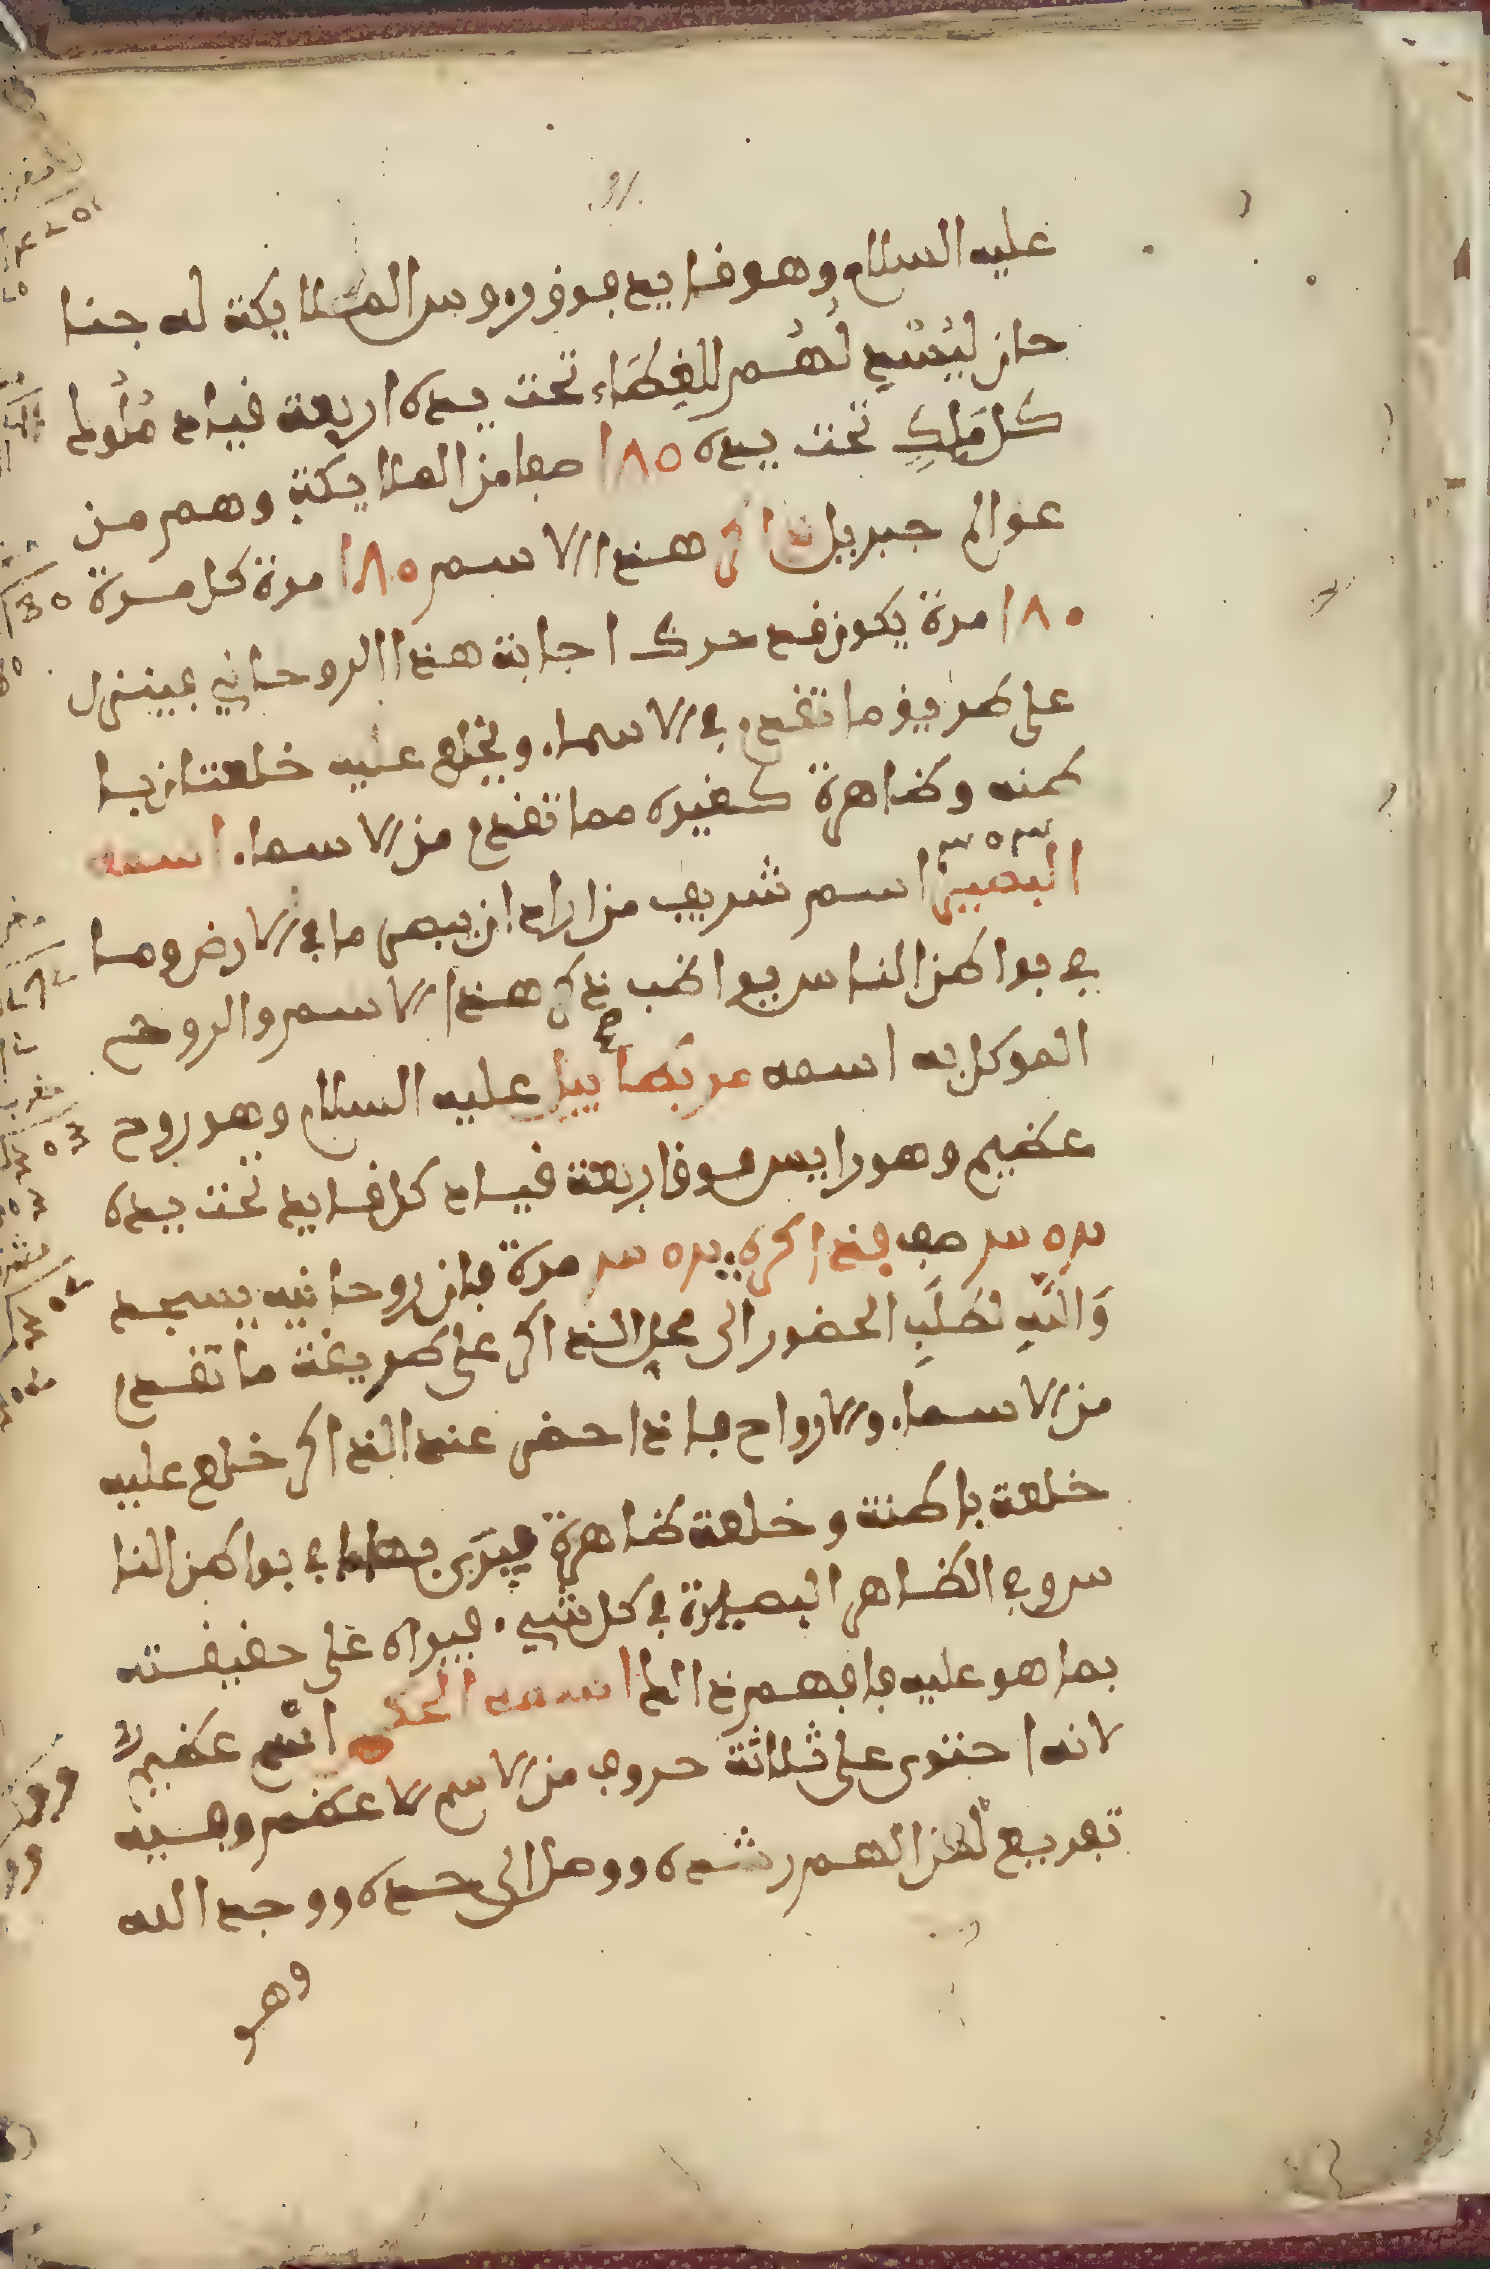 31.
عليه السلام وهو قايد فوق روس الملايكة له جنا
حان ليسند لهم للقضاء تحت يده اربعة قياد ملوك
كل ملك تحت يده ١٨٥ صفا من الملايكة وهم من
عوالم جبريل ذاكر هذا الاسم ١٨٠ مرة كل مرة
١٨٠ مرة يكون قد حرك اجابة هذا الروحاني فينزل
على طريق ما تقدم في الاسماء ويخلع عليه خلعتان با
طنه وظاهرة كغيره مما تقدم من الاسماء اسمه
البصير اسم شريف من اراد ان يبصر ما في الارض وما
في بواطن الناس يواظب ذكر هذا الاسم والروح
الموكل به اسمه عليه السلام وهو روح
عظيم وهو رايس فوق اربعة قياد كل قايد تحت يده
صف فذاكره مرة فان روحانيه يسجد
والله نطلب الحضور الى محل الذاكر على طريقة ما تقدم
من الاسماء والارواح فاذا حضر عند الذاكر خلع عليه
خلعة باطنة وخلعة ظاهرة فيرى بها في بواطن النا
س وفي الظاهر البصيرة في كل شيء فيراه على حقيقته
بما هو عليه فافهم ذالك اسمه الحكم اسم عظيم
لانه احتوى على ثلاثة حروف من الاسم الاعظم وفيه
تفريع لمن الهم رشده ووصل الى حده ووجد الله
وهو